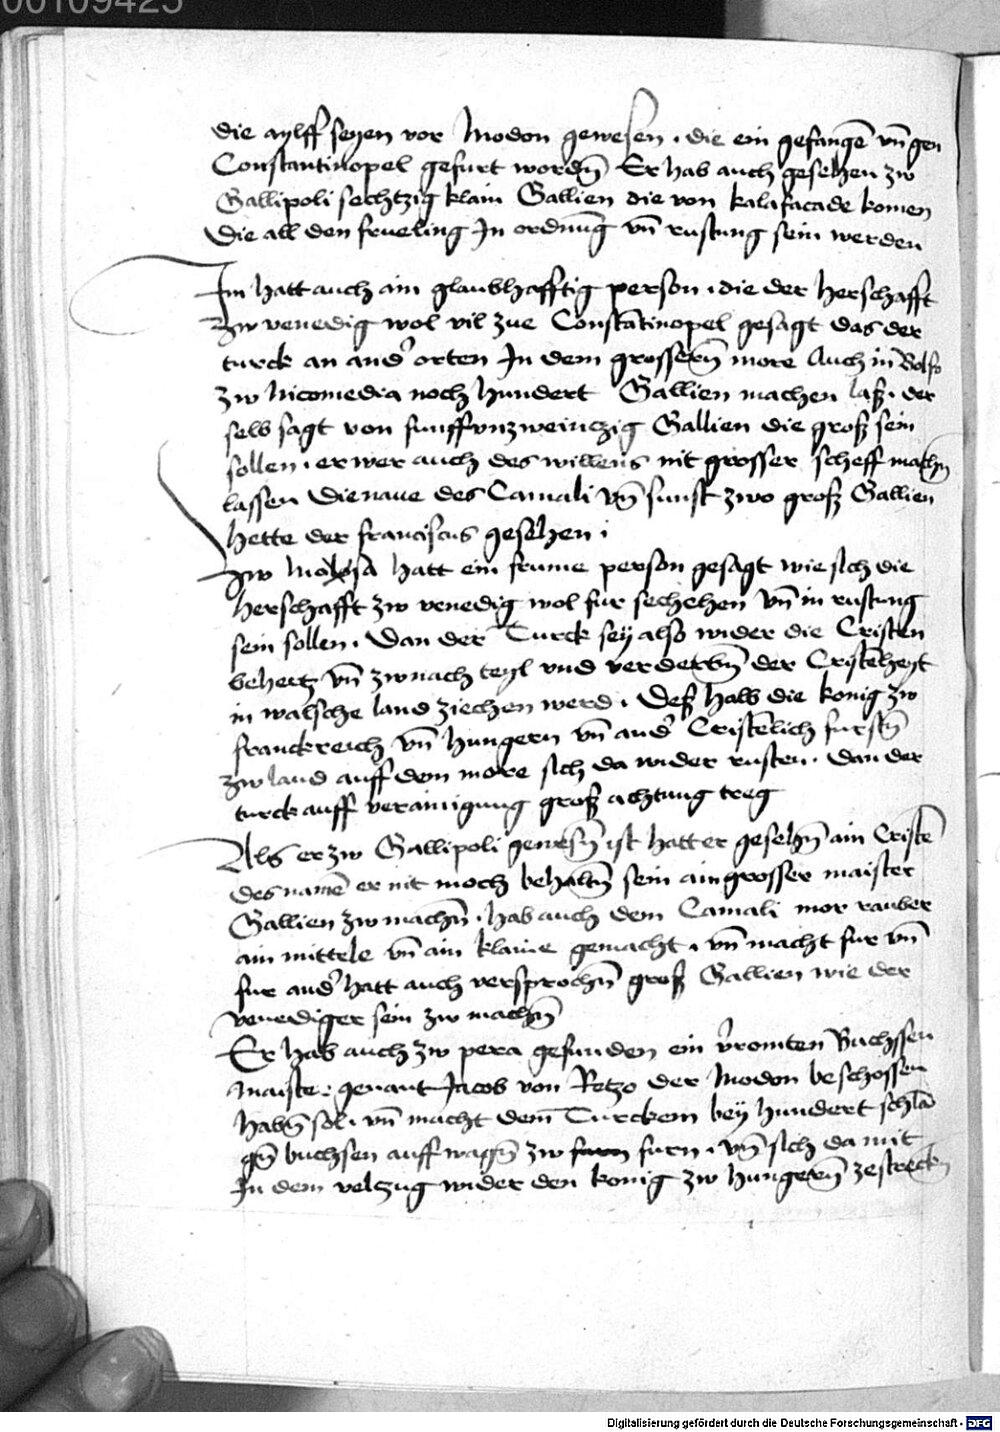 00109425
die aylff seyen vor Modon gewesen . die ein gefangē vn̄ gen
Constantinopel gefurt wordn̄ Er hab auch gesehen zw
Gallipoli sechtzig klain Gallien die von kalafacade komen
Die all den frueling In ordnūg vn̄ rustung sein werden
Im hatt auch ain glaubhafftig person . die der herschafft
zw venedig wol vil zue Constātinopel gesagt das der
turck an and' orten In dem grosserm̄ more Auch in Golfo
zw Nicomedia noch hundert Gallien machen laß . der
selb sagt von funffvnzweinczig Gallien die groß sein
sollen . er wer auch des willens nit grosser scheff machn̄
lassen Die naue des Camali vn̄ sunst zwo groß Gallien
hette der franciscus gesehen .
Zw hatt ein frume person gesagt wie sich die
herschafft zw venedig wol fur sechehen vn̄ in rustung
sein sollen . Dan der Turck sey also wider die Cristen
behertz vn̄ zw nach teyl vnd verderbn̄ der Cristēheyt
in walsche land ziechen werd . Deß halb die konig zw
franckreich vn̄ hungern vn̄ and' Cristēlich furstn̄
zw land auff dem more sich da wider rusten . Dan der
turck auff verainigung groß achtung treg
Als er zw Gallipoli gewesn̄ ist hatt er gesehn̄ ain Cristē
des namē er nit moch behaltn̄ sein ain grosser maister
Gallien zw machn̄ . hab auch dem Camali mor rauber
ain mittele vn̄ ain klaine gemacht . vn̄ macht fur vn̄
fur and' hatt auch versprochn̄ groß Gallien wie der
venediger sein zw machn̄
Er hab auch zw pera gefunden ein v'romten Buchssen
maister genant Jacob von Retzo der Modon beschossen
habn̄ sol . vn̄ macht dem Turckem bey hundert schlā
gn̄ buchsen auff wagn̄ zw furn furn . vn̄ sich da mit
In dem veltzug wider den konig zw hungerm̄ zestreckn̄
Digitalisierung gefördert durch die Deutsche Forschungsgemeinschaft - DFG